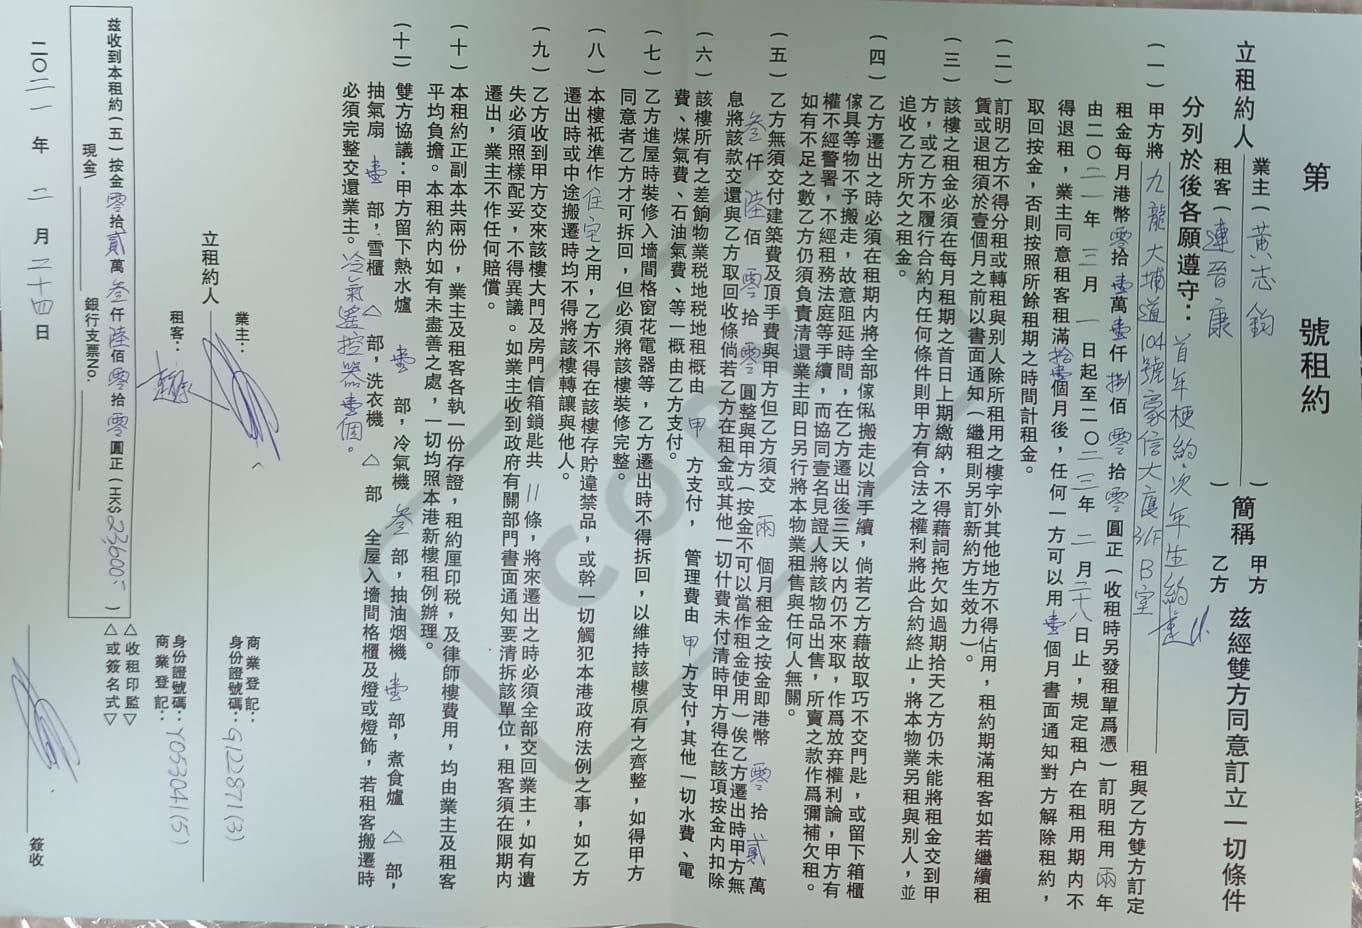 第 號租約
立租約人 業主(黃志鈞) 簡稱 甲方 茲經雙方同意訂立一切條件
租客(連晉康) 乙方
分列於後各願遵守: 首年梗約,次年生約
(一) 甲方將 九龍大埔道104號豪信大廈3/F B室 租與乙方雙方訂定
租金每月港幣零拾壹萬壹仟捌佰零拾零圓正(收租時另發租單爲憑)訂明租用兩年
由二〇二一年三月一日起至二〇二三年二月二十八日止,規定租户在租用期内不
得退租,業主同意租客租滿拾壹個月後,任何一方可以用壹個月書面通知對方解除租約,
取回按金,否則按照所餘租期之時間計租金。
(二) 訂明乙方不得分租或轉租與別人除所租用之樓宇外其他地方不得佔用,租約期滿租客如若繼續租
賃或退租須於壹個月之前以書面通知(繼租則另訂新約方生效力)。
(三) 該樓之租金必須在每月租期之首日上期繳納,不得藉詞拖欠如過期拾天乙方仍未能將租金交到甲
方,或乙方不履行合約内任何條件則甲方有合法之權利將此合約終止,將本物業另租與別人,並
追收乙方所欠之租金。
(四) 乙方遷出之時必須在租期内將全部傢俬搬走以清手續,倘若乙方藉故取巧不交門匙,或留下箱櫃
傢具等物不予搬走,故意阻延時間,在乙方遷出後三天以内仍不來取,作爲放弃權利論,甲方有
權不經警署,不經租務法庭等手續,而協同壹名見證人將該物品出售,所賣之款作爲彌補欠租。
如有不足之數乙方仍須負責清還業主即日另行將本物業租售與任何人無關。
(五) 乙方無須交付建築費及頂手費與甲方但乙方須交 兩 個月租金之按金即港幣 零 拾 貳 萬
叁仟陸佰零拾零圓整與甲方(按金不可以當作租金使用)俟乙方遷出時甲方無
息將該款交還與乙方取回收條倘若乙方在租金或其他一切什費未付清時甲方得在該項按金内扣除
(六) 該樓所有之差餉物業税地税地租概由 甲 方支付, 管理費由 甲 方支付,其他一切水費、電
費、煤氣費、石油氣費、等一概由乙方支付。
(七) 乙方進屋時裝修入墻間格窗花電器等,乙方遷出時不得拆回,以維持該樓原有之齊整,如得甲方
同意者乙方才可拆回,但必須將該樓裝修完整。
(八) 本樓衹準作 住宅 之用,乙方不得在該樓存貯違禁品,或幹一切觸犯本港政府法例之事,如乙方
遷出時或中途搬遷時均不得將該樓轉讓與他人。
(九) 乙方收到甲方交來該樓大門及房門信箱鎖匙共 11 條,將來遷出之時必須全部交回業主,如有遺
失必須照樣配妥,不得異議。如業主收到政府有關部門書面通知要清拆該單位,租客須在限期内
遷出,業主不作任何賠償。
(十) 本租約正副本共兩份,業主及租客各執一份存證,租約厘印税,及律師樓費用,均由業主及租客
平均負擔。本租約内如有未盡善之處,一切均照本港新樓租例辦理。
(十一) 雙方協議:甲方留下熱水爐 壹 部,冷氣機 叁 部,抽油烟機 壹 部,煮食爐 △ 部,
抽氣扇 壹 部,雪櫃 △ 部,洗衣機 △ 部 全屋入墻間格櫃及燈或燈飾,若租客搬遷時
必須完整交還業主。冷氣遙控器壹個。
業主: 商業登記:
身份證號碼:G122871(3)
立租約人
租客: 身份證號碼:Y053041(5)
商業登記:
茲收到本租約(五)按金零拾貳萬叁仟陸佰零拾零圓正(HK$ 23600 )
△收租印監▽
△或簽名式▽
現金\ 銀行支票NO.
二〇二一 年 二 月 二十四 日 簽收
COPY